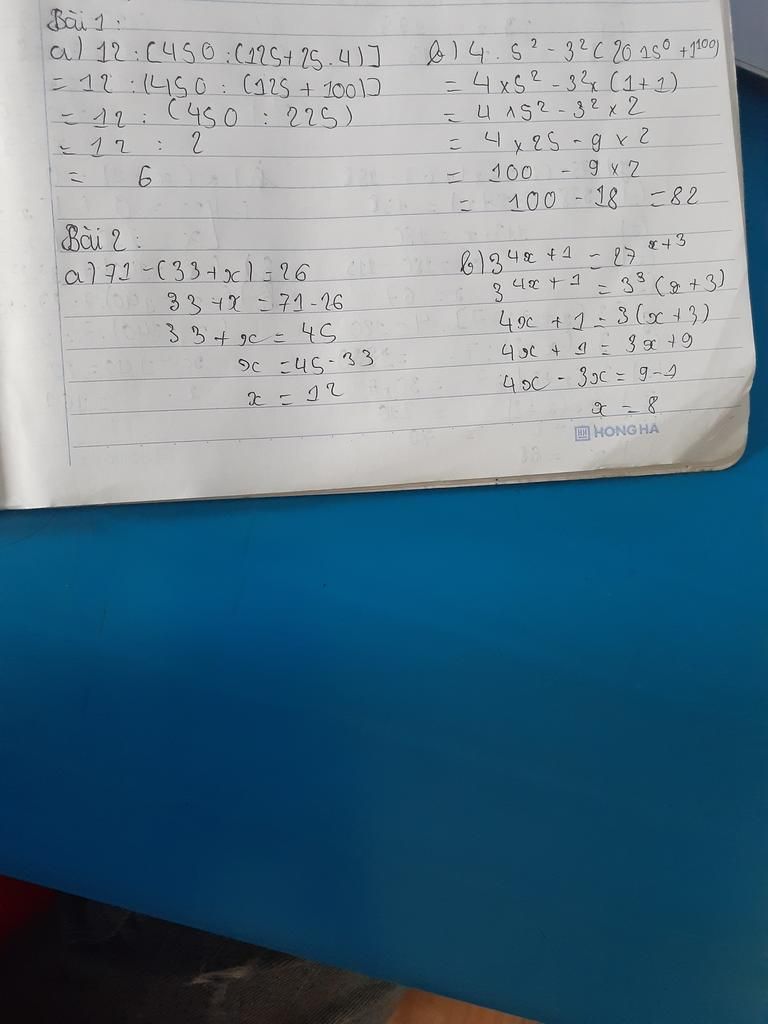 Bài 1:
a) 12 : [450 : (125 + 25 . 4)]
= 12 : [450 : (125 + 100)]
= 12 : (450 : 225)
= 12 : 2
= 6
b) 4 . 5² - 3² (2015⁰ + 1¹⁰⁰)
= 4 x 5² - 3² x (1 + 1)
= 4 x 5² - 3² x 2
= 4 x 25 - 9 x 2
= 100 - 9 x 2
= 100 - 18 = 82
Bài 2:
a) 71 - (33 + x) = 26
33 + x = 71 - 26
33 + x = 45
x = 45 - 33
x = 12
b) 3⁴ˣ⁺¹ = 27ˣ⁺³
3⁴ˣ⁺¹ = 3³ (x + 3)
4x + 1 = 3(x + 3)
4x + 1 = 3x + 9
4x - 3x = 9 - 1
x = 8
HH HONG HA